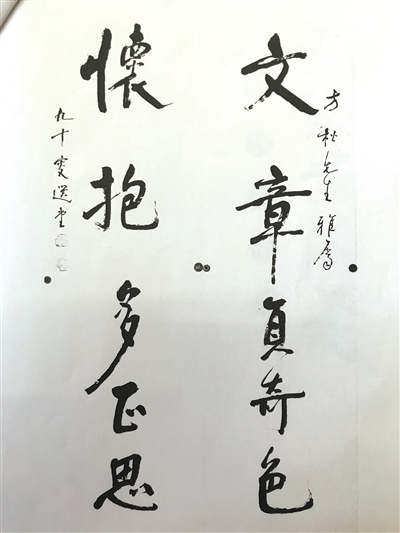 方秋先生雅属
文章負奇色
懷抱多正思
九十叟選堂